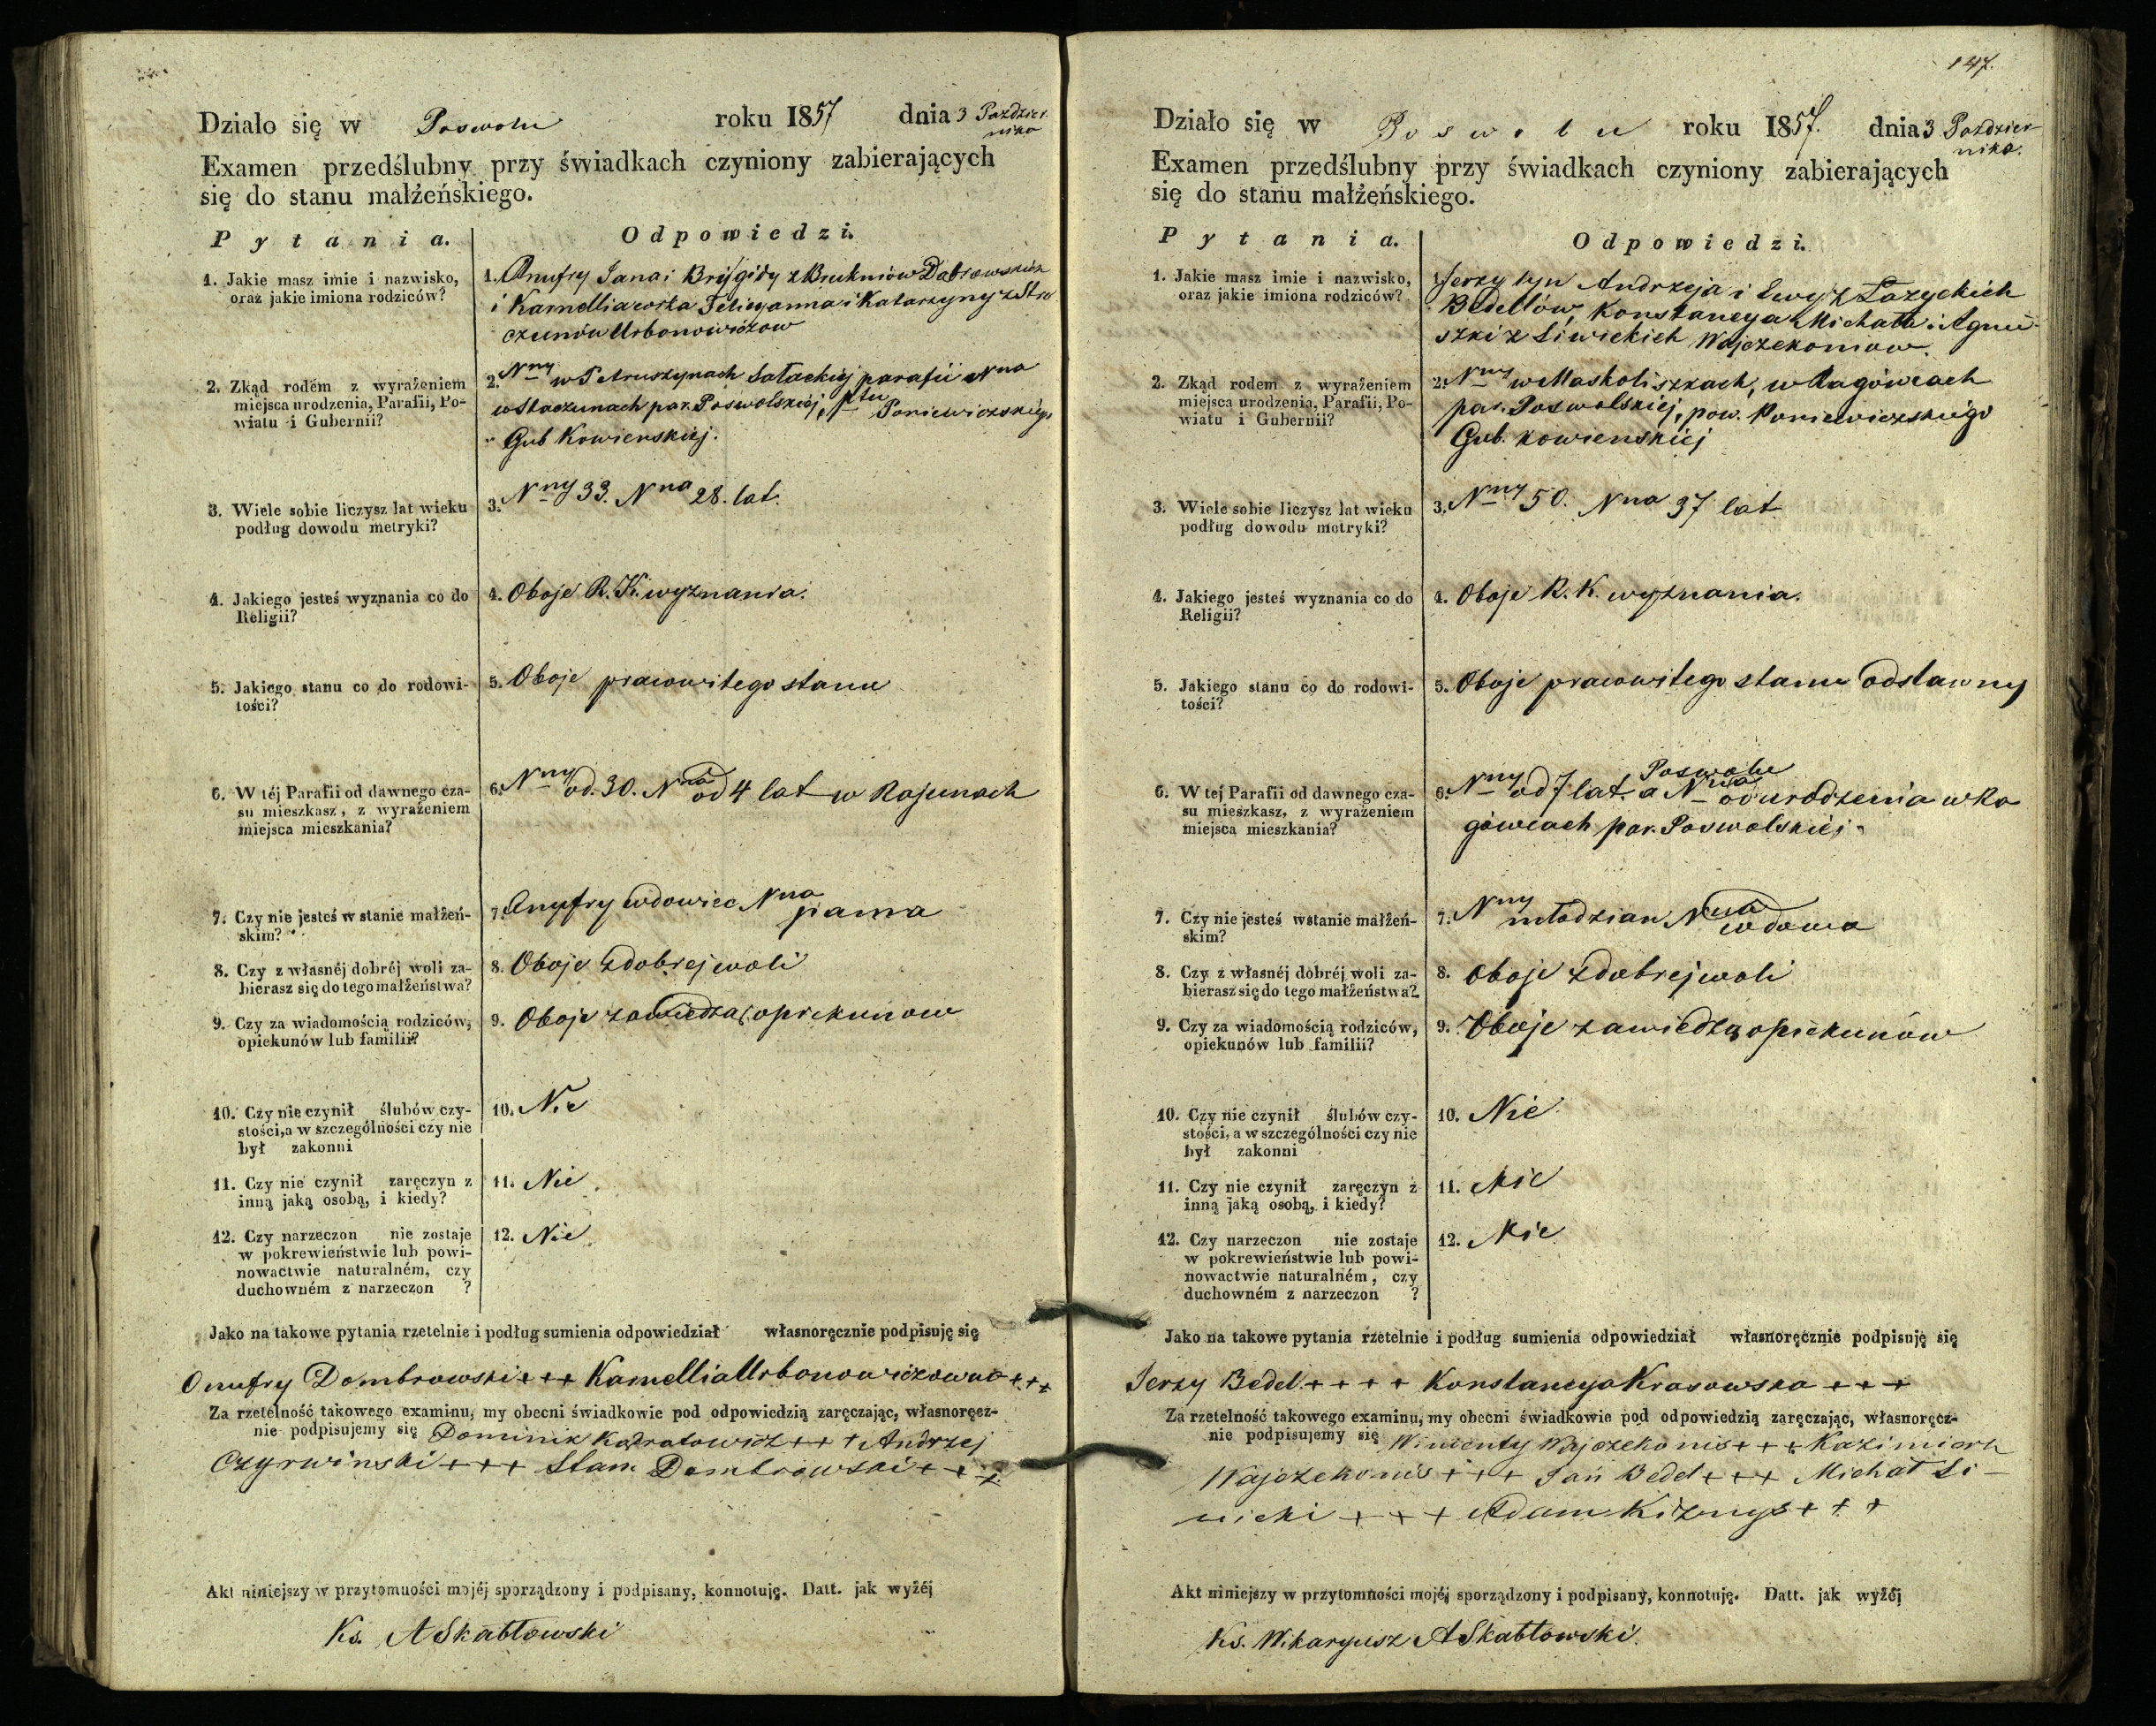 Działo się w Poswolu roku 1857 dnia 3 Paździer
nika
Examen przedślubny przy świadkach czyniony zabierających
się do stanu małżeńskiego.
Pytania. Odpowiedzi.
1. Jakie masz imie i nazwisko,
oraz jakie imiona rodziców?
1. Onufry Jana i Brygidy z Brukniów Dąbrowskich
i Kamellia corka Felicyanna i Katarzyny z Stra
czunów Urbonowiczow
2. Zkąd rodem z wyrażeniem
miejsca urodzenia, Parafii, Po-
wiatu i Gubernii?
2. Nny w Petruszynach Sałackiej parafii Nna
w Staczunach par. Poswolskiej, ptu Poniewiezskiego
Gub Kowienskiej.
3. Wiele sobie liczysz lat wieku
podług dowodu metryki?
3. Nny 33. Nna 28. lat.
4. Jakiego jesteś wyznania co do
Religii?
4. Oboje R. K. wyznania.
5. Jakiego stanu co do rodowi-
tości?
5. Oboje prawowitego stanu
6. W téj Parafii od dawnego cza-
su mieszkasz, z wyrażeniem
miejsca mieszkania?
6. Nny od 30. Nna od 4 lat w Rajunach
7. Czy nie jesteś w stanie małżeń-
skim?
7. Onufry wdowiec Nna panna
8. Czy z własnéj dobréj woli za-
bierasz się do tego małżeństwa?
8. Oboje z dobrej woli
9. Czy za wiadomością rodziców,
opiekunów lub familii?
9. Oboje za wiedzą opiekunow
10. Czy nie czynił ślubów czy-
stości, a w szczególności czy nie
był zakonni
10. Nie
11. Czy nie czynił zaręczyn z
inną jaką osobą, i kiedy?
11. Nie
12. Czy narzeczon nie zostaje
w pokrewieństwie lub powi-
nowactwie naturalném, czy
duchowném z narzeczon ?
12. Nie
Jako na takowe pytania rzetelnie i podług sumienia odpowiedział własnoręcznie podpisuję się
Onufry Dombrowski + + + Kamellia Urbonowiczowna + + +
Za rzetelność takowego examinu, my obecni świadkowie pod odpowiedzią zaręczając, własnoręcz-
nie podpisujemy się Dominik Kodratowicz + + + Andrzej
Czyrwinski + + + Stan Dombrowski + + +
Akt niniejszy w przytomności mojéj sporządzony i podpisany, konnotuję. Datt. jak wyżéj
Ks. A Skabłowski
147.
Działo się w Poswolu roku 1857. dnia 3 Paździer
nika.
Examen przedślubny przy świadkach czyniony zabierających
się do stanu małżeńskiego.
Pytania. Odpowiedzi.
1. Jakie masz imie i nazwisko,
oraz jakie imiona rodziców?
1. Jerzy syn Andrzeja i Ewy z Łazyckich
Bedelów, Konstancya Michała i Agnie
szki z Liwickich Wojczekoniow.
2. Zkąd rodem z wyrażeniem
miejsca urodzenia, Parafii, Po-
wiatu i Gubernii?
2. Nny w Maskoliszkach, w Ragówcach
par. Poswolskiej, pow. Poniewiezskiego
Gub. kowienskiej
3. Wiele sobie liczysz lat wieku
podług dowodu metryki?
3. Nny 50. Nna 37 lat
4. Jakiego jesteś wyznania co do
Religii?
4. Oboje R. K. wyznania.
5. Jakiego stanu co do rodowi-
tości?
5. Oboje prawowitego stanu odstawny
6. W tej Parafii od dawnego cza-
su mieszkasz, z wyrażeniem
miejsca mieszkania?
Poswolu
6. Nny od 7 lat. a Nna od urodzenia w Ra
gówcach par. Poswolskiej.
7. Czy nie jesteś w stanie małżeń-
skim?
7. Nny młodzian Nna wdowa
8. Czy z własnéj dobréj woli za-
bierasz się do tego małżeństwa?
8. Oboje z dobrej woli
9. Czy za wiadomością rodziców,
opiekunów lub familii?
9. Oboje za wiedzą opiekunów
10. Czy nie czynił ślubów czy-
stości, a w szczególności czy nie
był zakonni
10. Nie
11. Czy nie czynił zaręczyn z
inną jaką osobą, i kiedy?
11. Nie
12. Czy narzeczon nie zostaje
w pokrewieństwie lub powi-
nowactwie naturalném, czy
duchowném z narzeczon ?
12. Nie
Jako na takowe pytania rzetelnie i podług sumienia odpowiedział własnoręcznie podpisuję się
Jerzy Bedel + + + + Konstancya Krasowska + + +
Za rzetelność takowego examinu, my obecni świadkowie pod odpowiedzią zaręczając, własnoręcz-
nie podpisujemy się Wincenty Wojczekonis + + + Kazimierz
Wajczekonis + + + Jan Bedel + + + Michał Li-
wicki + + + Adam Kiznys + + +
Akt niniejszy w przytomności mojéj sporządzony i podpisany, konnotuję. Datt. jak wyżéj
Ks. Wikaryusz A Skabłowski.